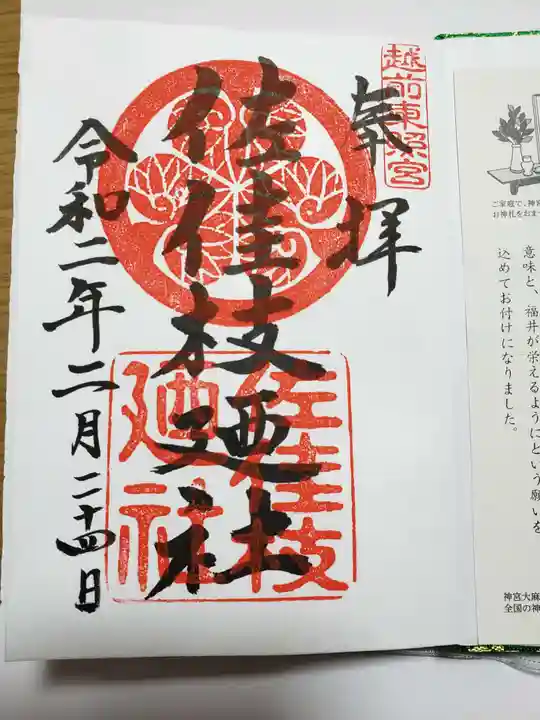 越前東照宮
奉拝
佐佳枝廼社
佐佳枝
廼社
令和二年二月二十四日
ご家庭で、神宮
お神札をおま
意味と、福井が栄えるようにという願いを
込めてお付けになりました。
神宮大麻
全国の神